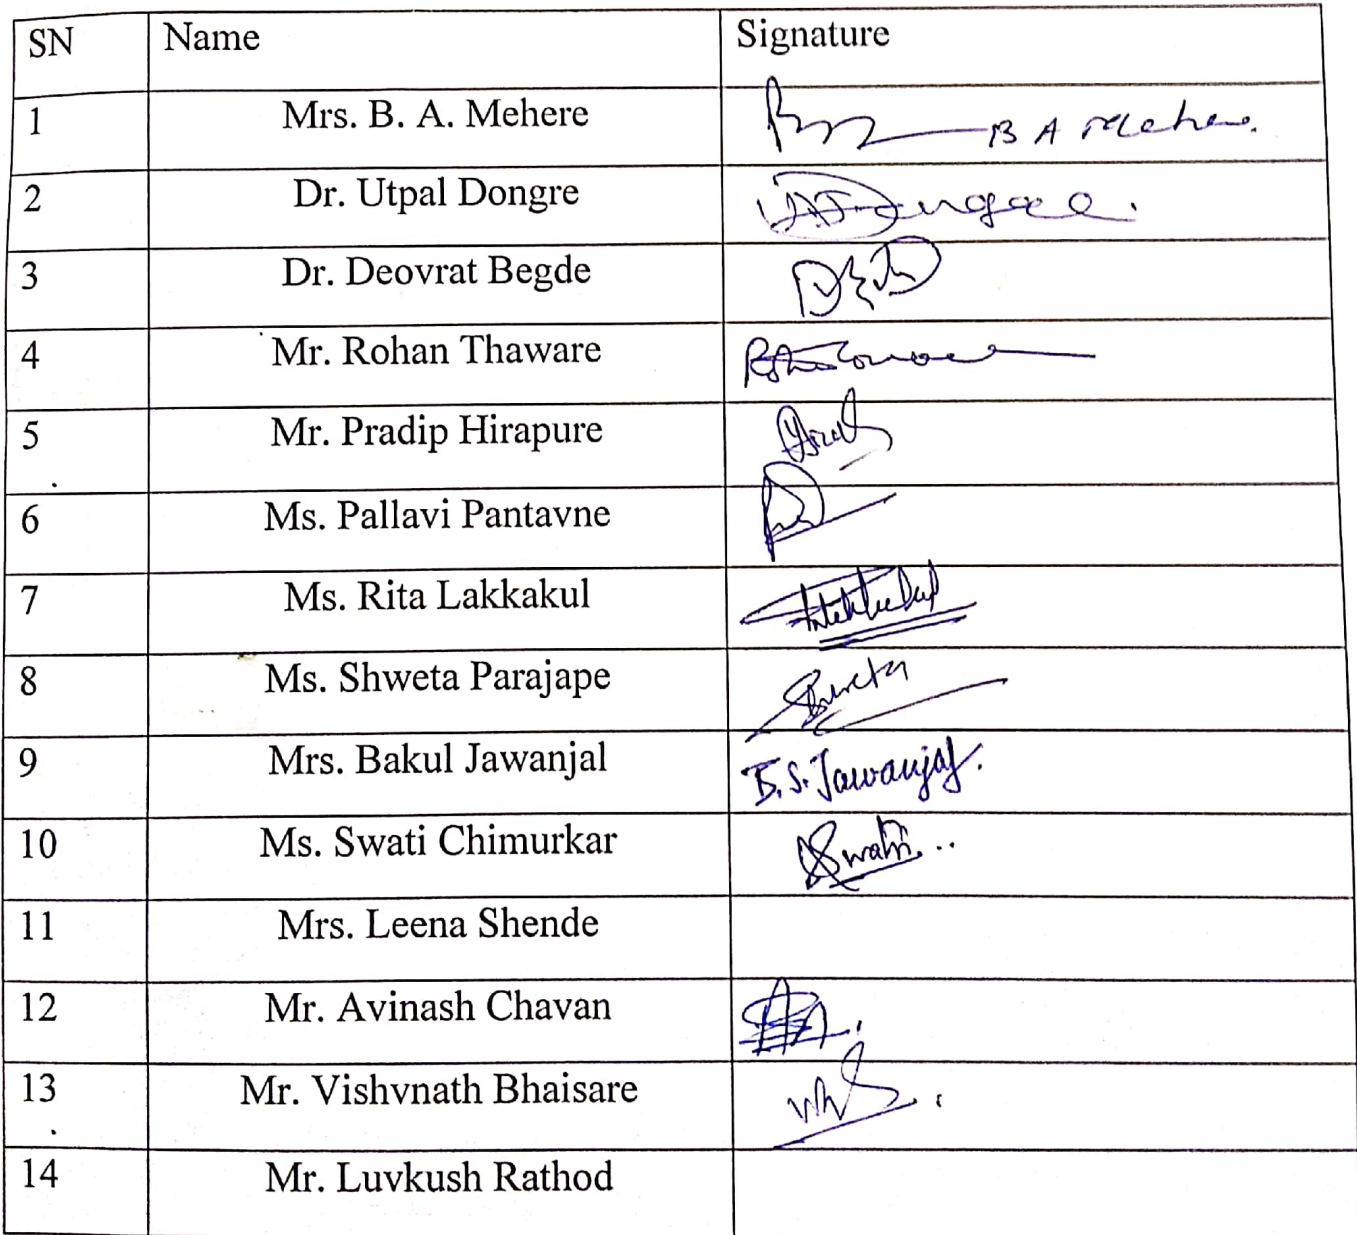 SN Name Signature
1 Mrs. B. A. Mehere B A Mehere.
2 Dr. Utpal Dongre
3 Dr. Deovrat Begde
4 Mr. Rohan Thaware
5 Mr. Pradip Hirapure
6 Ms. Pallavi Pantavne
7 Ms. Rita Lakkakul
8 Ms. Shweta Parajape Shweta
9 Mrs. Bakul Jawanjal B.S. Jawanjal.
10 Ms. Swati Chimurkar Swati..
11 Mrs. Leena Shende
12 Mr. Avinash Chavan
13 Mr. Vishvnath Bhaisare
14 Mr. Luvkush Rathod